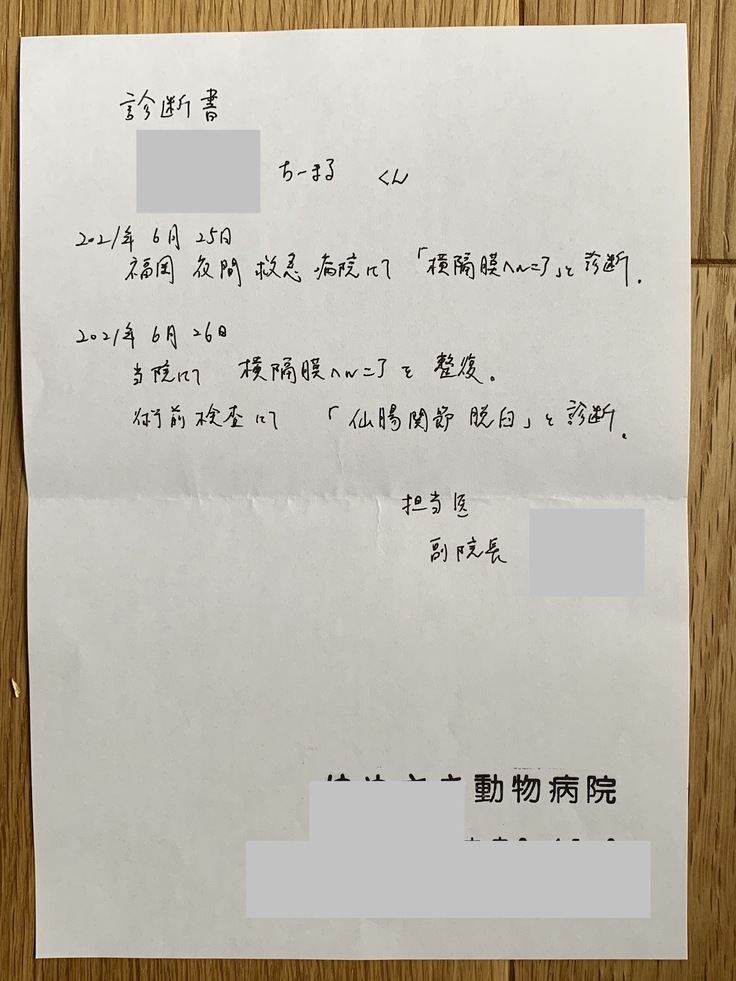 診断書
ちーまる くん
2021年 6月 25日
福岡 夜間 救急 病院にて 「横隔膜ヘルニア」と 診断.
2021年 6月 26日
当院にて 横隔膜ヘルニア を 整復。
術前検査にて 「仙腸関節 脱臼」と 診断.
担当医
副院長
動物病院